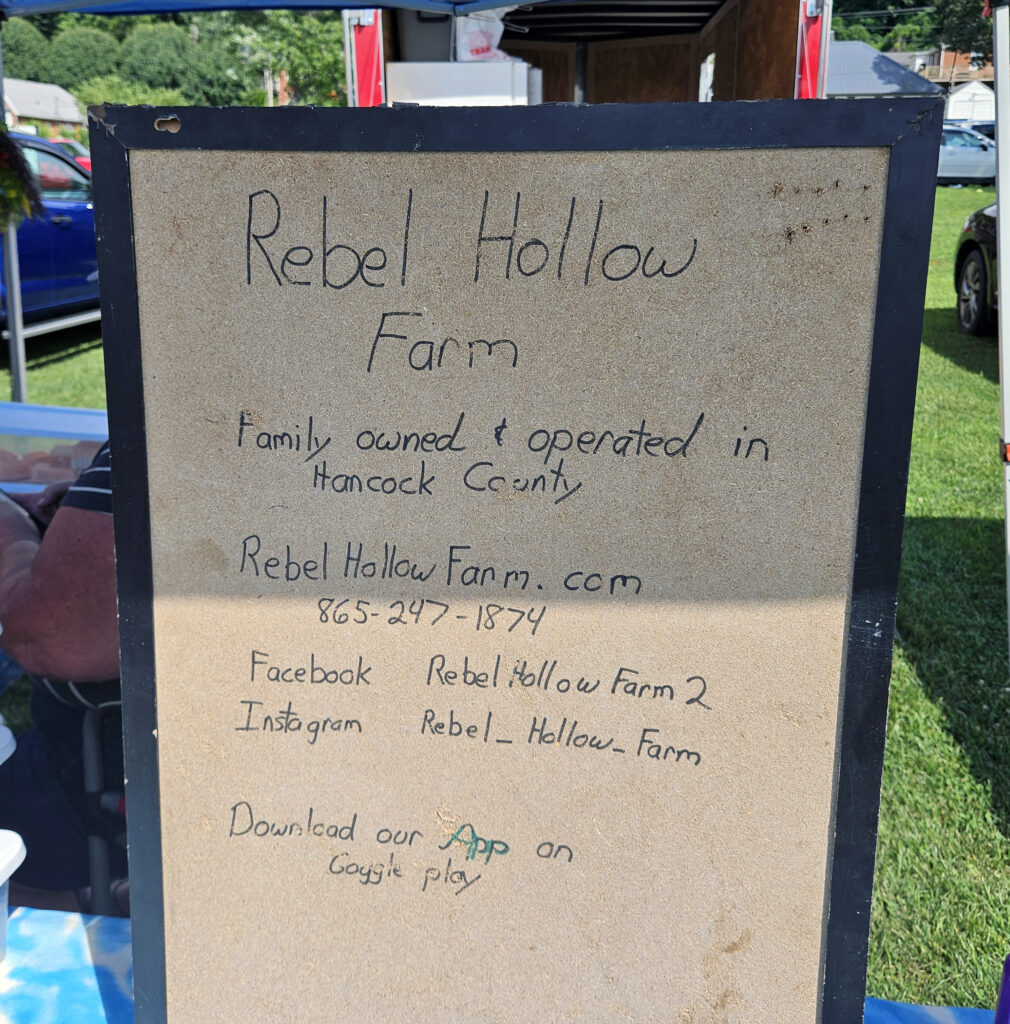 Rebel Hollow
Farm
Family owned & operated in
Hancock County
RebelHollowFarm.com
865-247-1874
Facebook RebelHollowFarm2
Instagram Rebel_Hollow_Farm
Download our App on
Google play